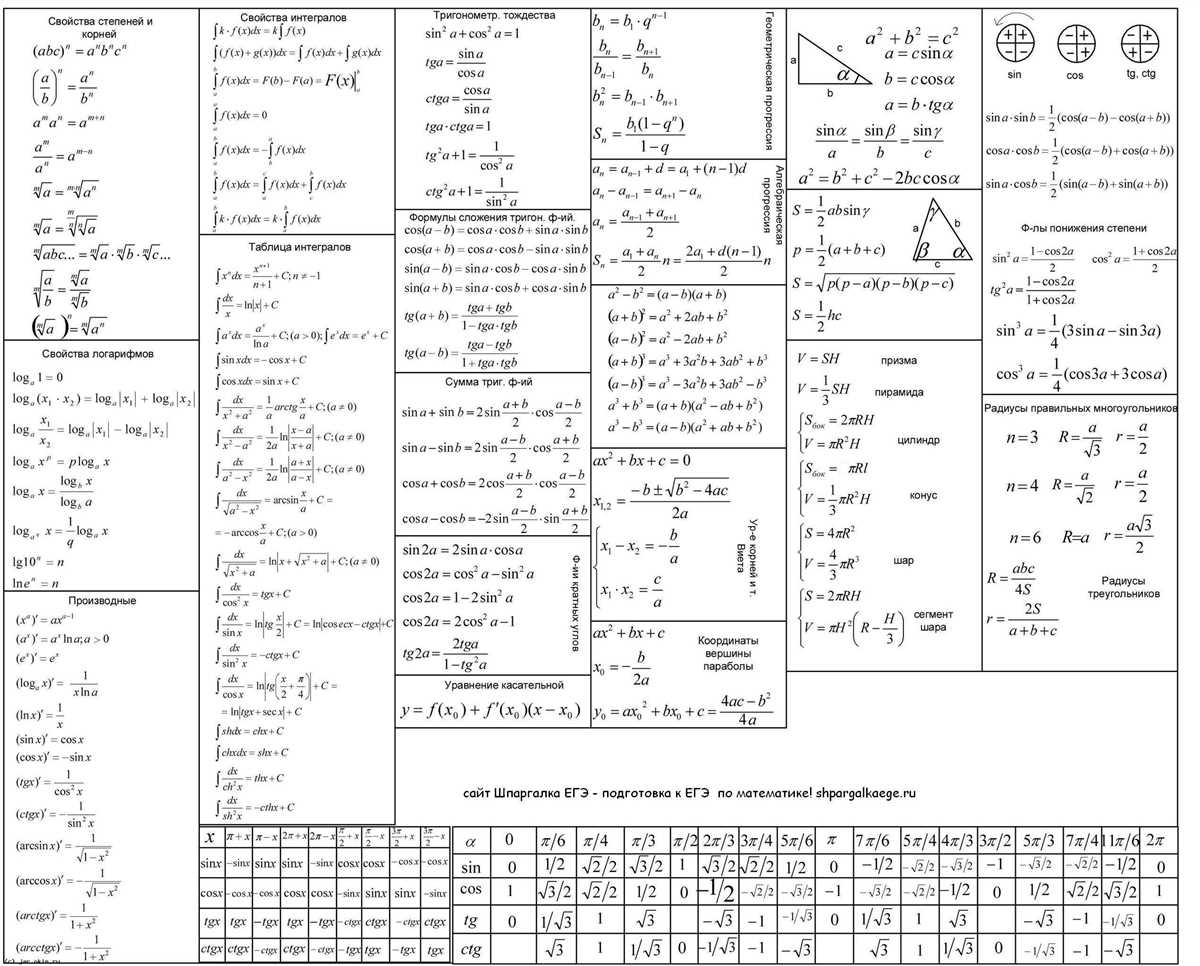 Свойства степеней и
корней
(abc)ⁿ = aⁿbⁿcⁿ
(a/b)ⁿ = aⁿ/bⁿ
aᵐaⁿ = aᵐ⁺ⁿ
aᵐ/aⁿ = aᵐ⁻ⁿ
Свойства логарифмов
logₐ 1 = 0
logₐ(x₁ · x₂) = logₐ|x₁| + logₐ|x₂|
logₐ x₁/x₂ = logₐ|x₁| − logₐ|x₂|
logₐ xᵖ = p logₐ x
logₐ x = log_b x / log_b a
lg10ⁿ = n
ln eⁿ = n
Производные
(xᵃ)′ = axᵃ⁻¹
(aˣ)′ = aˣ ln a; a > 0
(eˣ)′ = eˣ
(logₐ x)′ = 1/(x ln a)
(ln x)′ = 1/x
(sin x)′ = cos x
(cos x)′ = −sin x
(tgx)′ = 1/cos² x
(ctgx)′ = −1/sin² x
(arcsin x)′ = 1/√(1−x²)
(arccos x)′ = −1/√(1−x²)
(arctgx)′ = 1/(1+x²)
(arcctgx)′ = −1/(1+x²)
Свойства интегралов
∫k·f(x)dx = k∫f(x)
∫(f(x)+g(x))dx = ∫f(x)dx + ∫g(x)dx
Таблица интегралов
∫xⁿdx = xⁿ⁺¹/(n+1) + C; n ≠ −1
∫dx/x = ln|x| + C
∫aˣdx = aˣ/ln a + C; (a > 0); ∫eˣdx = eˣ + C
∫sin xdx = −cos x + C
∫cos xdx = sin x + C
∫dx/(x²+a²) = 1/a arctg x/a + C; (a ≠ 0)
∫dx/(x²−a²) = 1/2a ln|(x−a)/(x+a)| + C; (a ≠ 0)
∫dx/(a²−x²) = 1/2a ln|(a+x)/(a−x)| + C; (a ≠ 0)
∫dx/√(a²−x²) = arcsin x/a + C =
= −arccos x/a + C; (a > 0)
∫dx/√(x²+a) = ln|x + √(x²+a)| + C; (a ≠ 0)
∫dx/cos² x = tgx + C
∫dx/sin x = ln|tg x/2| + C = ln|cosecx − ctgx| + C
∫dx/sin² x = −ctgx + C
∫dx/cos x = ln|tg(x/2 + π/4)| + C =
= ln|tgx + sec x| + C
∫shdx = chx + C
∫chxdx = shx + C
∫dx/ch²x = thx + C
∫dx/sh²x = −cthx + C
Тригонометр. тождества
sin² a + cos² a = 1
tga = sin a/cos a
ctga = cos a/sin a
tga·ctga = 1
tg²a + 1 = 1/cos² a
ctg²a + 1 = 1/sin² a
Формулы сложения тригон. ф-ий.
cos(a−b) = cosa·cosb + sina·sinb
cos(a+b) = cosa·cosb − sina·sinb
sin(a−b) = sina·cosb − cosa·sinb
sin(a+b) = sina·cosb + cosa·sinb
tg(a+b) = (tga+tgb)/(1−tga·tgb)
tg(a−b) = (tga−tgb)/(1+tga·tgb)
Сумма триг. ф-ий
sina + sinb = 2sin (a+b)/2 · cos (a−b)/2
sina − sinb = 2sin (a−b)/2 · cos (a+b)/2
cosa + cosb = 2cos (a+b)/2 · cos (a−b)/2
cosa − cosb = −2sin (a−b)/2 · sin (a+b)/2
Ф-ии кратных углов
sin2a = 2sina·cosa
cos2a = cos² a − sin² a
cos2a = 1 − 2sin² a
cos2a = 2cos² a − 1
tg2a = 2tga/(1−tg²a)
Уравнение касательной
y = f(x₀) + f′(x₀)(x − x₀)
Геометрическая прогрессия
bₙ = b₁·qⁿ⁻¹
bₙ/bₙ₋₁ = bₙ₊₁/bₙ
bₙ² = bₙ₋₁·bₙ₊₁
Sₙ = b₁(1−qⁿ)/(1−q)
Алгебраическая прогрессия
aₙ = aₙ₋₁ + d = a₁ + (n−1)d
aₙ − aₙ₋₁ = aₙ₊₁ − aₙ
aₙ = (aₙ₋₁ + aₙ₊₁)/2
Sₙ = (a₁+aₙ)/2 n = (2a₁+d(n−1))/2 n
a² − b² = (a−b)(a+b)
(a+b)² = a² + 2ab + b²
(a−b)² = a² − 2ab + b²
(a+b)³ = a³ + 3a²b + 3ab² + b³
(a−b)³ = a³ − 3a²b + 3ab² − b³
a³ + b³ = (a+b)(a² − ab + b²)
a³ − b³ = (a−b)(a² + ab + b²)
Ур-е корней и т. Виета
ax² + bx + c = 0
x₁,₂ = (−b ± √(b² − 4ac))/2a
x₁ − x₂ = −b/a
x₁ · x₂ = c/a
Координаты
вершины
параболы
ax² + bx + c
x₀ = −b/2a
y₀ = ax₀² + bx₀ + c = (4ac − b²)/4a
a c α b
a² + b² = c²
a = c sinα
b = c cosα
a = b·tgα
sinα/a = sinβ/b = sinγ/c
a² = b² + c² − 2bc cosα
S = 1/2 ab sinγ
p = 1/2 (a+b+c)
S = √(p(p−a)(p−b)(p−c))
S = 1/2 hc
a γ b β α c
V = SH призма
V = 1/3 SH пирамида
Sбок = 2πRH
V = πR²H цилиндр
Sбок = πRl
V = 1/3 πR²H конус
S = 4πR²
V = 4/3 πR³ шар
S = 2πRH
V = πH²(R − H/3) сегмент
шара
+ + − − − + − + − + + −
sin cos tg, ctg
sina·sinb = 1/2 (cos(a−b) − cos(a+b))
cosa·cosb = 1/2 (cos(a−b) + cos(a+b))
sina·cosb = 1/2 (sin(a−b) + sin(a+b))
Ф-лы понижения степени
sin² a = (1−cos2a)/2 cos² a = (1+cos2a)/2
tg²a = (1−cos2a)/(1+cos2a)
sin³ a = 1/4 (3sina − sin3a)
cos³ a = 1/4 (cos3a + 3cosa)
Радиусы правильных многоугольников
n = 3 R = a/√3 r = a/2
n = 4 R = a/√2 r = a/2
n = 6 R=a r = a√3/2
R = abc/4S
r = 2S/(a+b+c)
Радиусы
треугольников
сайт Шпаргалка ЕГЭ - подготовка к ЕГЭ по математике! shpargalkaege.ru
x π+x π−x 2π+x 2π−x π/2+x π/2−x 3π/2+x 3π/2−x
sinx −sinx sinx sinx −sinx cosx cosx −cosx −cosx
cosx −cosx −cosx cosx cosx −sinx sinx sinx −sinx
tgx tgx −tgx tgx −tgx −ctgx ctgx −ctgx ctgx
ctgx ctgx −ctgx ctgx −ctgx −tgx tgx −tgx tgx
α 0 π/6 π/4 π/3 π/2 2π/3 3π/4 5π/6 π 7π/6 5π/4 4π/3 3π/2 5π/3 7π/4 11π/6 2π
sin 0 1/2 √2/2 √3/2 1 √3/2 √2/2 1/2 0 −1/2 −√2/2 −√3/2 −1 −√3/2 −√2/2 −1/2 0
cos 1 √3/2 √2/2 1/2 0 −1/2 −√2/2 −√3/2 −1 −√3/2 −√2/2 −1/2 0 1/2 √2/2 √3/2 1
tg 0 1/√3 1 √3 −√3 −1 −1/√3 0 1/√3 1 √3 −√3 −1 −1/√3 0
ctg √3 1 1/√3 0 −1/√3 −1 −√3 √3 1 1/√3 0 −1/√3 −1 −√3